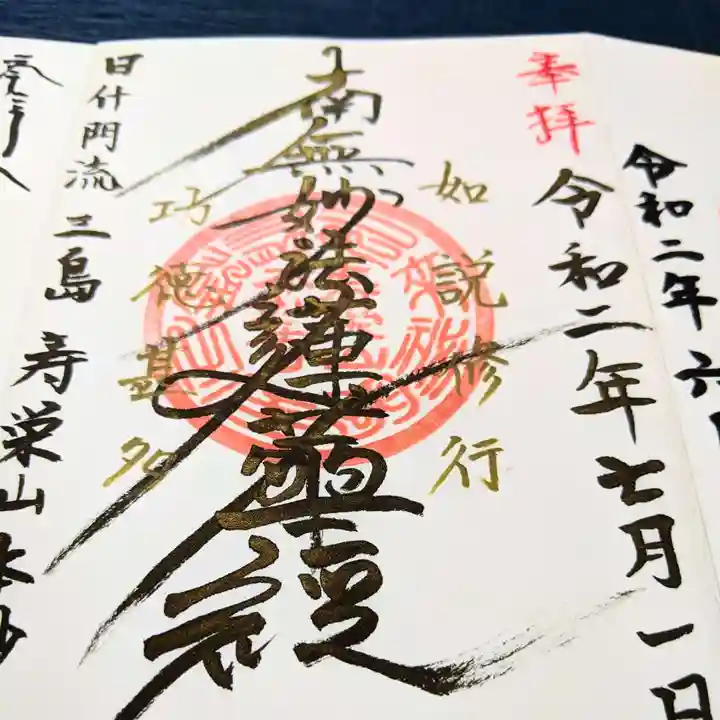 令和二年六月
奉拝
令和二年七月一日
如説修行
南無妙法蓮華経
功徳甚多
日什門流 三島 寿栄山 本妙